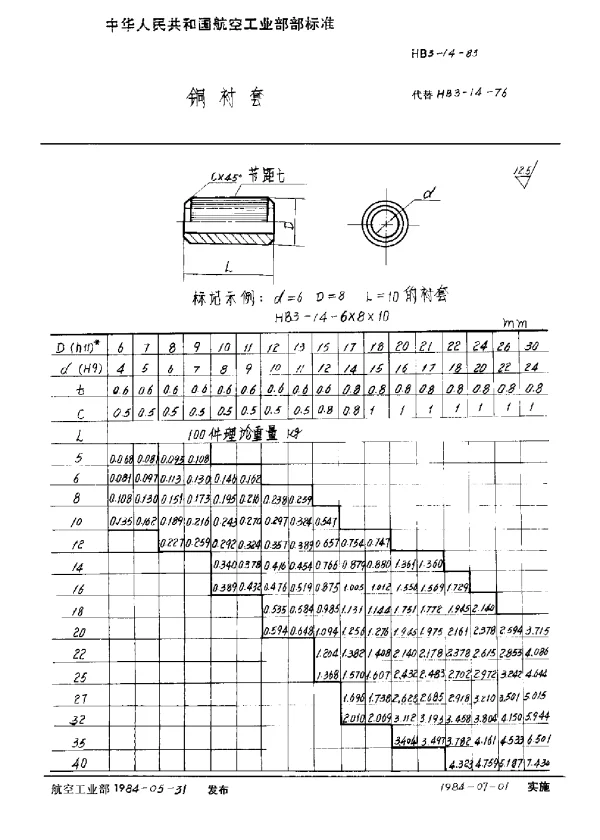 中华人民共和国航空工业部部标准
HB3-14-83
铜衬套
代替HB3-14-76
12.5
C×45° 节距t
d
D
L
标记示例: d=6 D=8 L=10的衬套
HB3-14-6×8×10
mm
D (h11)* 6 7 8 9 10 11 12 13 15 17 18 20 21 22 24 26 30
d (H9) 4 5 6 7 8 9 10 11 12 14 15 16 17 18 20 22 24
t 0.6 0.6 0.6 0.6 0.6 0.6 0.6 0.6 0.6 0.8 0.8 0.8 0.8 0.8 0.8 0.8 0.8
C 0.5 0.5 0.5 0.5 0.5 0.5 0.5 0.5 0.8 0.8 1 1 1 1 1 1 1
L 100件理论重量 kg
5 0.068 0.081 0.095 0.108
6 0.081 0.097 0.113 0.130 0.146 0.162
8 0.108 0.130 0.151 0.173 0.195 0.216 0.238 0.259
10 0.135 0.162 0.189 0.216 0.243 0.270 0.297 0.324 0.547
12 0.227 0.259 0.292 0.324 0.357 0.389 0.657 0.754 0.747
14 0.340 0.378 0.416 0.454 0.766 0.879 0.880 1.361 1.360
16 0.389 0.432 0.476 0.519 0.875 1.005 1.012 1.556 1.569 1.729
18 0.535 0.584 0.985 1.131 1.144 1.751 1.772 1.945 2.140
20 0.594 0.648 1.094 1.256 1.276 1.945 1.975 2.161 2.378 2.594 3.715
22 1.204 1.382 1.408 2.140 2.178 2.378 2.615 2.853 4.086
25 1.368 1.570 1.607 2.432 2.483 2.702 2.972 3.242 4.644
27 1.696 1.738 2.625 2.685 2.918 3.210 3.501 5.015
32 2.010 2.069 3.112 3.193 3.458 3.804 4.150 5.944
35 3.404 3.497 3.782 4.161 4.533 6.501
40 4.323 4.755 5.187 7.430
航空工业部 1984-05-31 发布 1984-07-01 实施